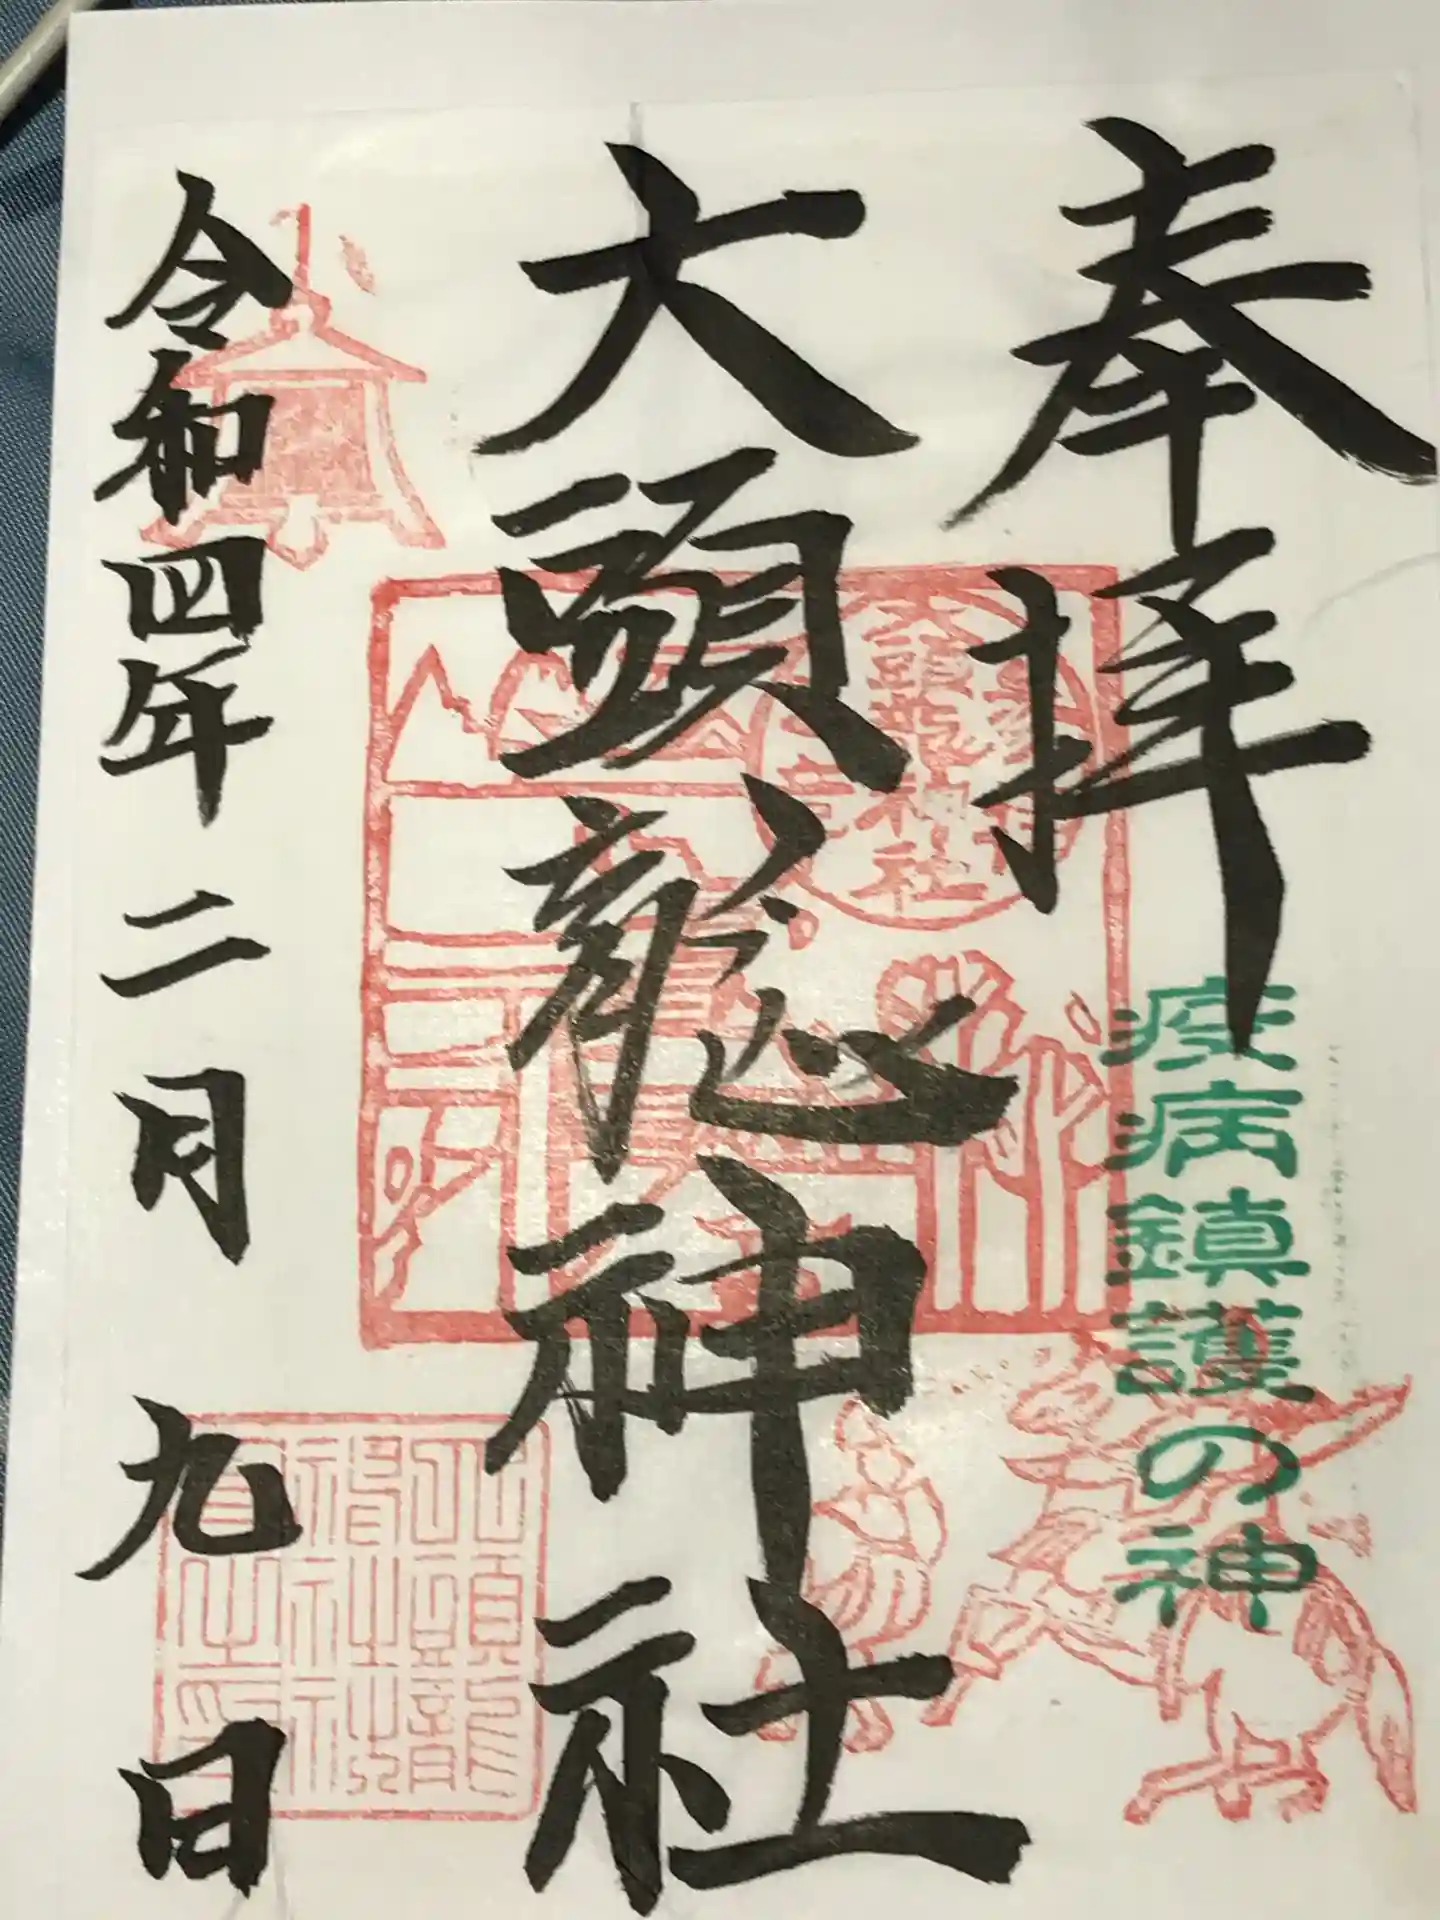 奉拝
疫病鎮護の神
大頭龍神社
大頭龍神社
令和四年二月九日